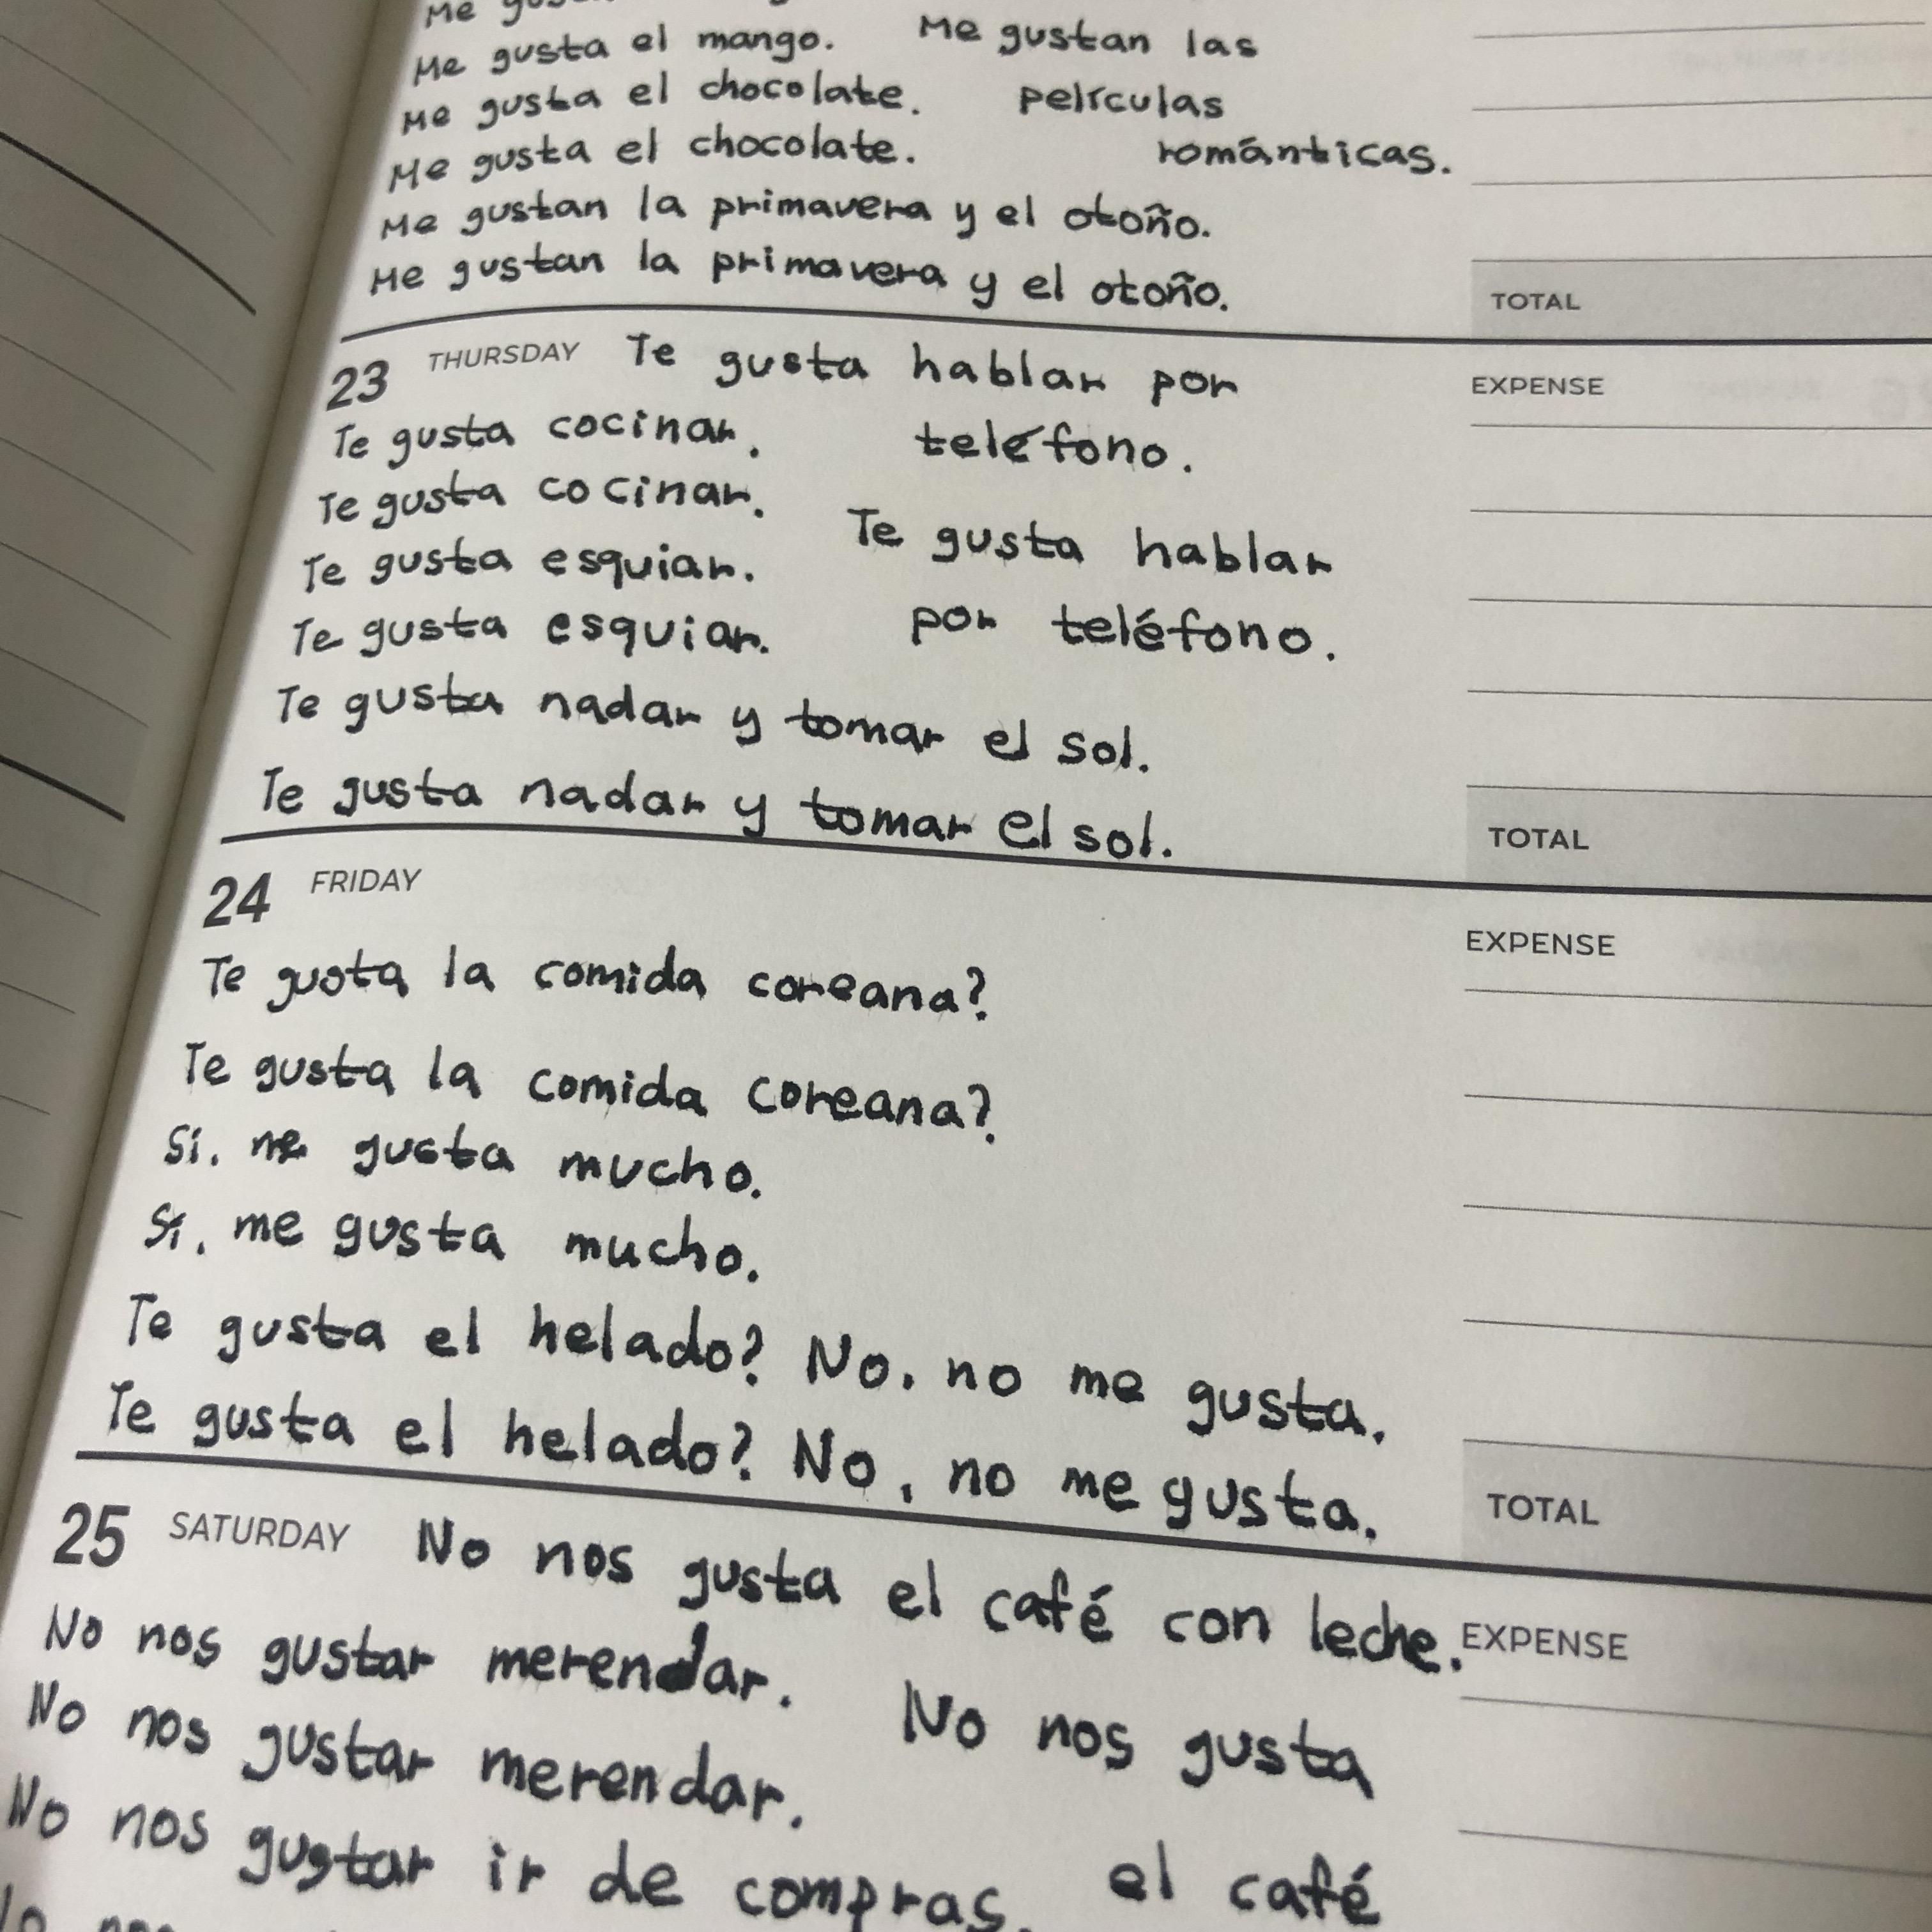 Me
Me gusta el mango. Me gustan las
Me gusta el chocolate. películas
Me gusta el chocolate. románticas.
Me gustan la primavera y el otoño.
Me gustan la primavera y el otoño.
TOTAL
23 THURSDAY Te gusta hablar por
EXPENSE
Te gusta cocinar. teléfono.
Te gusta cocinar.
Te gusta hablar
Te gusta esquiar.
Te gusta esquiar. por teléfono.
Te gusta nadar y tomar el sol.
Te gusta nadar y tomar el sol.
TOTAL
24 FRIDAY
EXPENSE
Te gusta la comida coreana?
Te gusta la comida coreana?
Sí. me gusta mucho.
Sí. me gusta mucho.
Te gusta el helado? No. no me gusta.
Te gusta el helado? No, no me gusta.
TOTAL
25 SATURDAY No nos gusta el café con leche.
EXPENSE
No nos gustar merendar.
No nos gusta
No nos gustar merendar.
No nos gustar ir de compras. el café